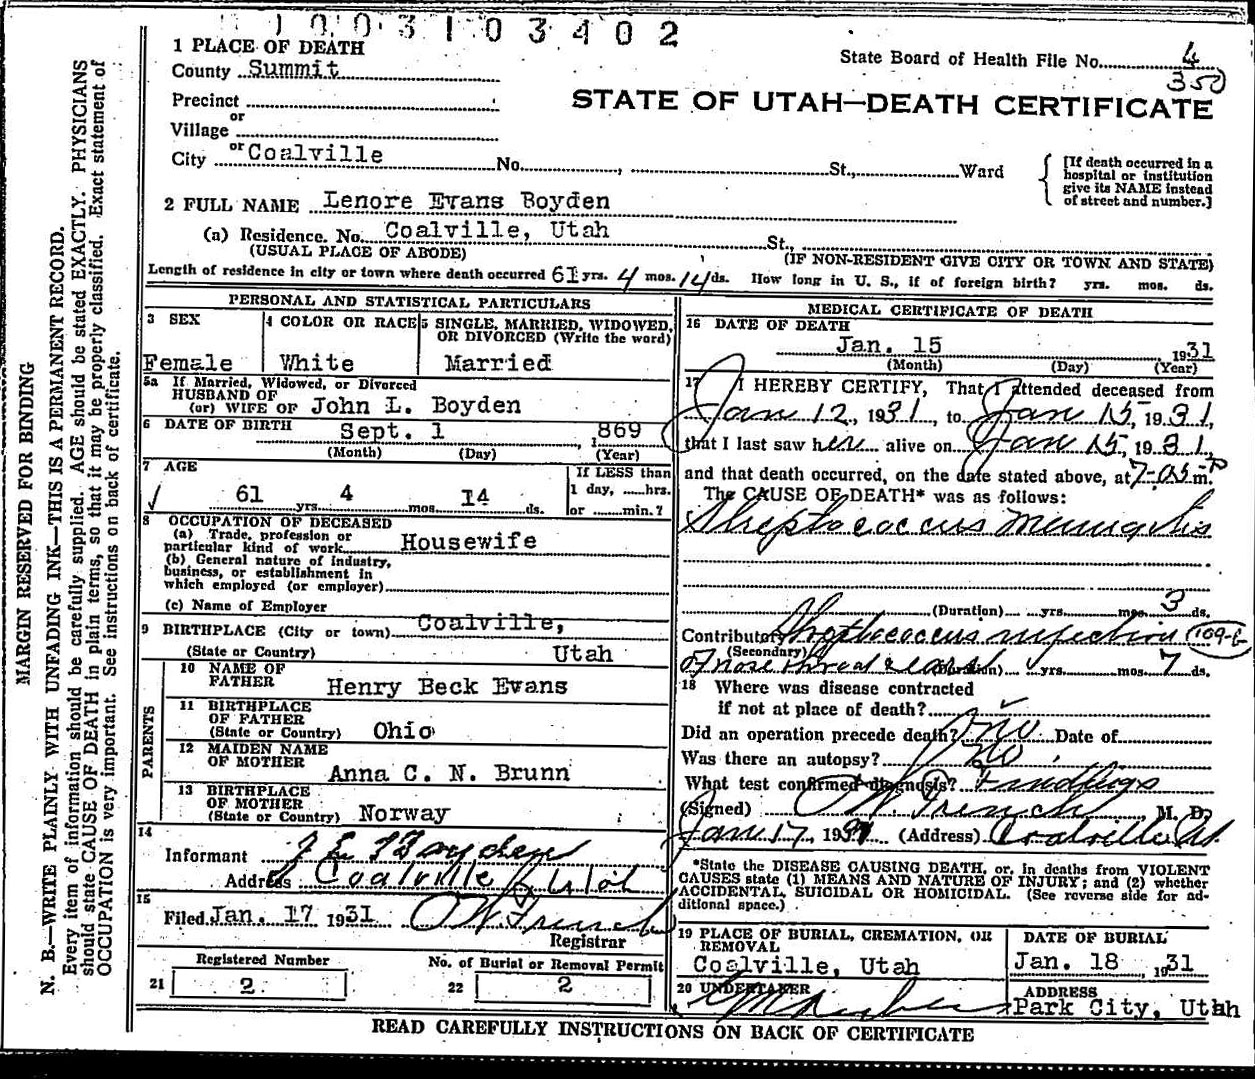 1003103402
1 PLACE OF DEATH
County Summit
State Board of Health File No. 4
350
STATE OF UTAH—DEATH CERTIFICATE
Precinct
or
Village
or
City Coalville No. , St., Ward
[If death occurred in a
hospital or institution
give its NAME instead
of street and number.]
2 FULL NAME Lenore Evans Boyden
(a) Residence. No. Coalville, Utah St.,
(USUAL PLACE OF ABODE) (IF NON-RESIDENT GIVE CITY OR TOWN AND STATE)
Length of residence in city or town where death occurred 61 yrs. 4 mos. 14 ds. How long in U. S., if of foreign birth? yrs. mos. ds.
PERSONAL AND STATISTICAL PARTICULARS
3 SEX
Female
4 COLOR OR RACE
White
5 SINGLE, MARRIED, WIDOWED,
OR DIVORCED (Write the word)
Married
5a If Married, Widowed, or Divorced
HUSBAND OF
(or) WIFE OF John L. Boyden
6 DATE OF BIRTH Sept. 1 , 1869
(Month) (Day) (Year)
7 AGE
61 yrs. 4 mos. 14 ds.
If LESS than
1 day, ......hrs.
or ........min.?
8 OCCUPATION OF DECEASED
(a) Trade, profession or
particular kind of work Housewife
(b) General nature of industry,
business, or establishment in
which employed (or employer)
(c) Name of Employer
9 BIRTHPLACE (City or town) Coalville,
(State or Country) Utah
PARENTS
10 NAME OF
FATHER Henry Beck Evans
11 BIRTHPLACE
OF FATHER
(State or Country) Ohio
12 MAIDEN NAME
OF MOTHER Anna C. N. Brunn
13 BIRTHPLACE
OF MOTHER
(State or Country) Norway
14
Informant J L Boyden
Address Coalville Utah
15
Filed Jan. 17 1931 O W French
Registrar
Registered Number
21 2
No. of Burial or Removal Permit
22 2
MEDICAL CERTIFICATE OF DEATH
16 DATE OF DEATH
Jan. 15 1931
(Month) (Day) (Year)
17 I HEREBY CERTIFY, That I attended deceased from
Jan 12, 1931, to Jan 15, 1931,
that I last saw her alive on Jan 15, 1931,
and that death occurred, on the date stated above, at 7-05 P m.
The CAUSE OF DEATH* was as follows:
Streptococcus Meningitis
(Duration) yrs. mos. 3 ds.
Contributory Streptococcus infection 109-
(Secondary)
of nose throat & (Duration) yrs. mos. 7 ds.
18 Where was disease contracted
if not at place of death?
Did an operation precede death? No Date of
Was there an autopsy? No
What test confirmed diagnosis? Findings
(Signed) O W French M. D.
Jan 17 1931 (Address) Coalville Ut.
*State the DISEASE CAUSING DEATH, or, in deaths from VIOLENT
CAUSES state (1) MEANS AND NATURE OF INJURY; and (2) whether
ACCIDENTAL, SUICIDAL OR HOMICIDAL. (See reverse side for ad-
ditional space.)
19 PLACE OF BURIAL, CREMATION, OR
REMOVAL
Coalville, Utah
DATE OF BURIAL
Jan. 18 , 1931
20 UNDERTAKER
ADDRESS
Park City, Utah
READ CAREFULLY INSTRUCTIONS ON BACK OF CERTIFICATE
MARGIN RESERVED FOR BINDING
N. B.—WRITE PLAINLY WITH UNFADING INK—THIS IS A PERMANENT RECORD.
Every item of information should be carefully supplied. AGE should be stated EXACTLY. PHYSICIANS
should state CAUSE OF DEATH in plain terms, so that it may be properly classified. Exact statement of
OCCUPATION is very important. See instructions on back of certificate.